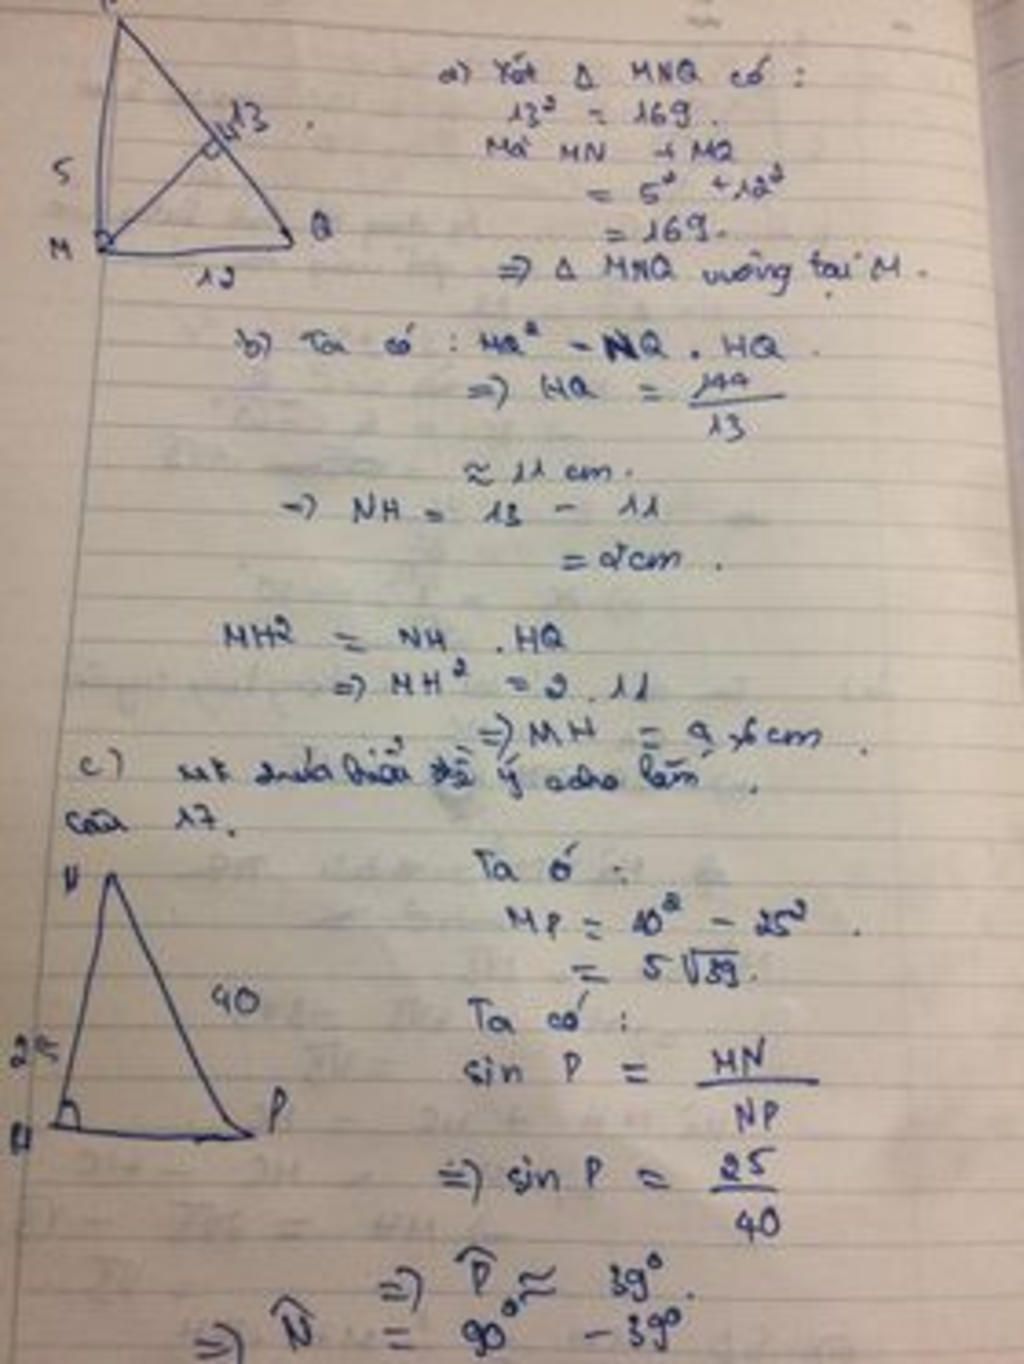 13
5
M
Q
12
a) Xét Δ MNQ có :
13² = 169.
Mà MN + MQ
= 5² + 12²
= 169.
=> Δ MNQ vuông tại M.
b) Ta có : MQ² = NQ . HQ
=> HQ = 144/13
≈ 11 cm.
=> NH = 13 - 11
= 2cm.
MH2 = NH . HQ
=> MH² = 2 . 11
=> MH =
c)
câu 17.
N
40
25
M
P
Ta có :
MP = 40² - 25².
= 5√39.
Ta có :
sin P = MN/NP
=> sin P = 25/40
=> P̂ ≈ 39°.
=> N̂ = 90° - 39°